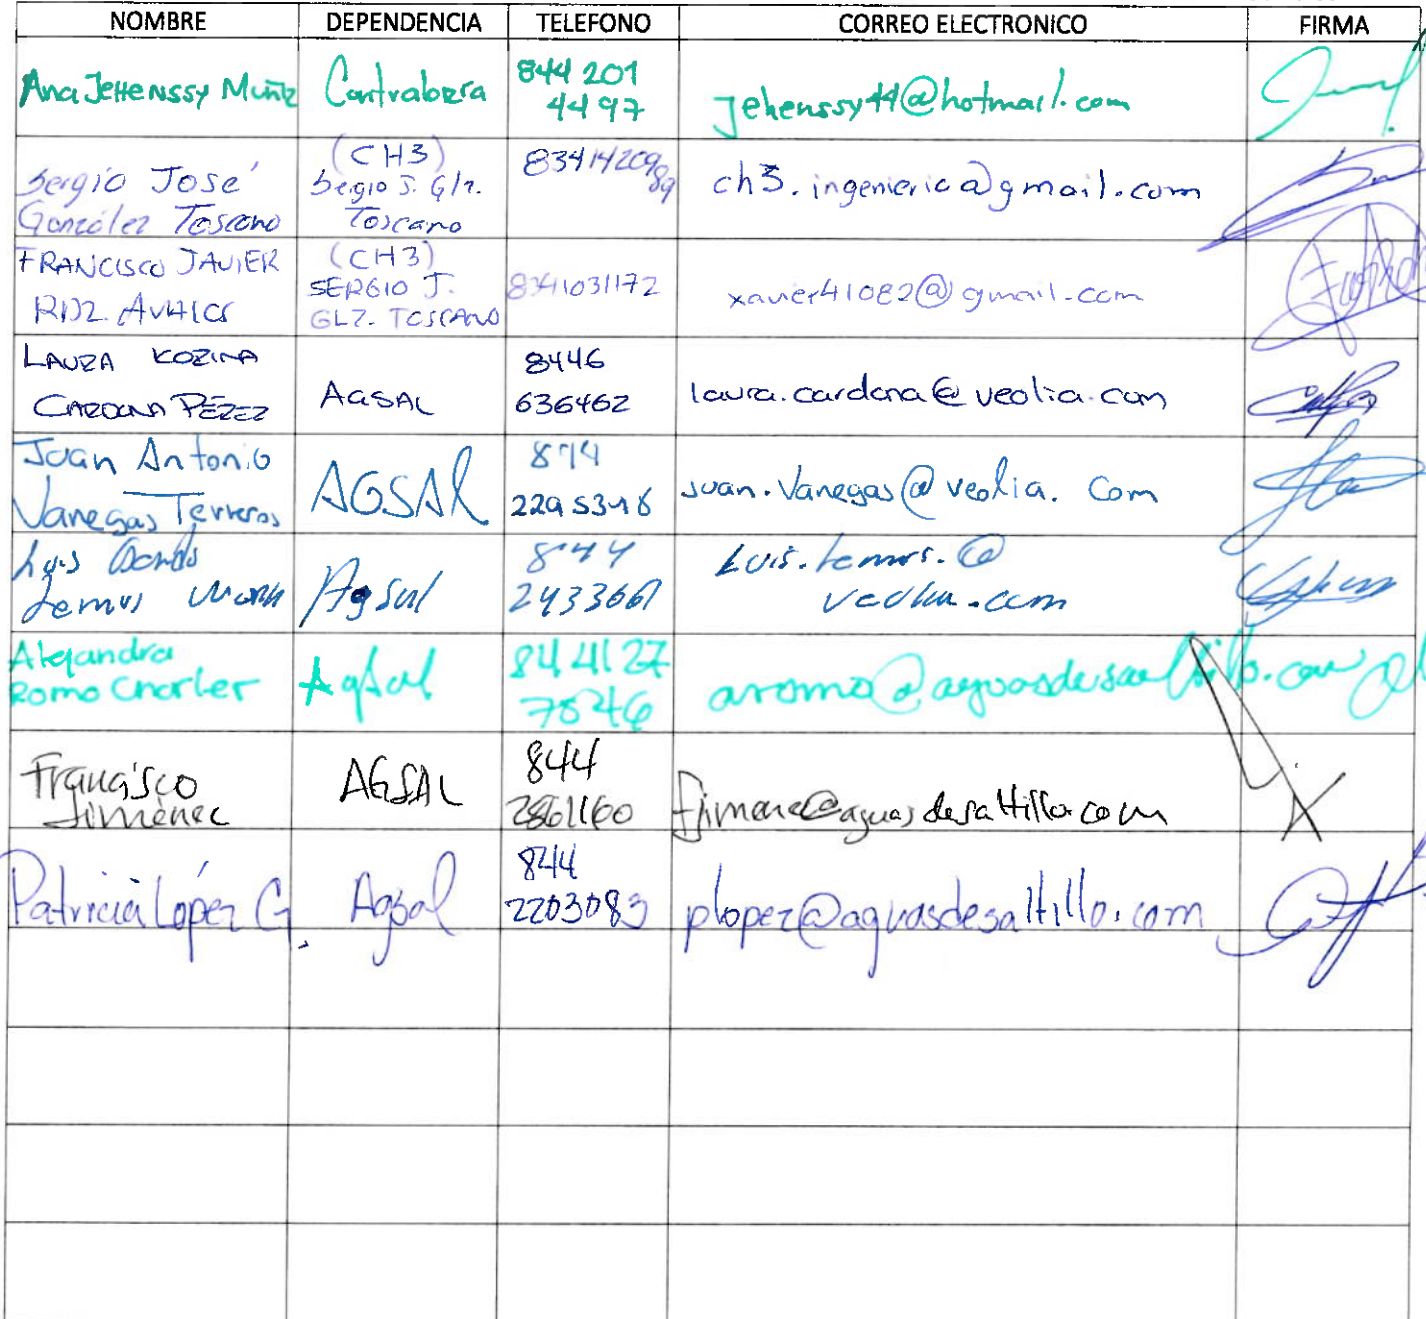 NOMBRE DEPENDENCIA TELEFONO CORREO ELECTRONICO FIRMA
Ana Jehenssy Muñiz Contraloria 844 201
4497 jehenssy44@hotmail.com
Sergio José
González Toscano (CH3)
Sergio J. Glz.
Toscano 8341420989 ch3.ingenieria@gmail.com
FRANCISCO JAVIER
RDZ. AVALOS (CH3)
SERGIO J.
GLZ. TOSCANO 8341031172 xavier41082@gmail.com
LAURA KOZINA
CARDONA PÉREZ AGSAL 8446
636462 laura.cardona@veolia.com
Juan Antonio
Vanegas Terreros AGSAL 844
2295348 juan.Vanegas@veolia.com
Luis
Lemus Agsal 844
2433661 Luis.lemus.@
veolia.com
Alejandra
Romo Charler Agsal 844127
7846 aromo@aguasdesaltillo.com
Francisco
Jiménez AGSAL 844
2861160 fjimenez@aguasdesaltillo.com
Patricia López G. Agsal 844
2203083 plopez@aguasdesaltillo.com